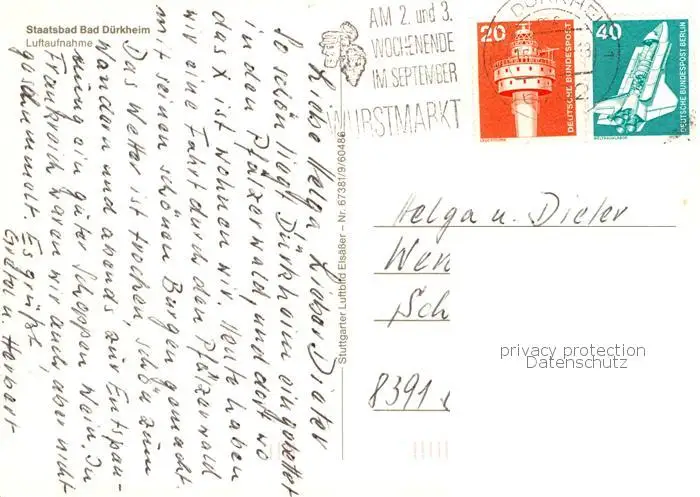 Staatsbad Bad Dürkheim
Luftaufnahme
AM 2. und 3.
WOCHENENDE
IM SEPTEMBER
WURSTMARKT
DÜRKHEIM
20
DEUTSCHE BUNDESPOST
40
DEUTSCHE BUNDESPOST BERLIN
WELTRAUMLABOR
Liebe Helga, Lieber Dieter
So schön liegt Dürkheim eingebettet
in den Pfälzerwald, und dort wo
das X ist wohnen wir. Heute haben
wir eine Fahrt durch den Pfälzerwald
mit seinen schönen Burgen gemacht.
Das Wetter ist trocken, schön zum
Wandern und abends, zur Entspan-
nung ein guter Schoppen Wein. In
Frankreich waren wir auch, aber nicht
geschummelt. Es grüßt
Gretel u. Herbert
Stuttgarter Luftbild Elsäßer – Nr. 67381/9/60486
Helga u. Dieter
Wer
Sch
8391
privacy protection
Datenschutz